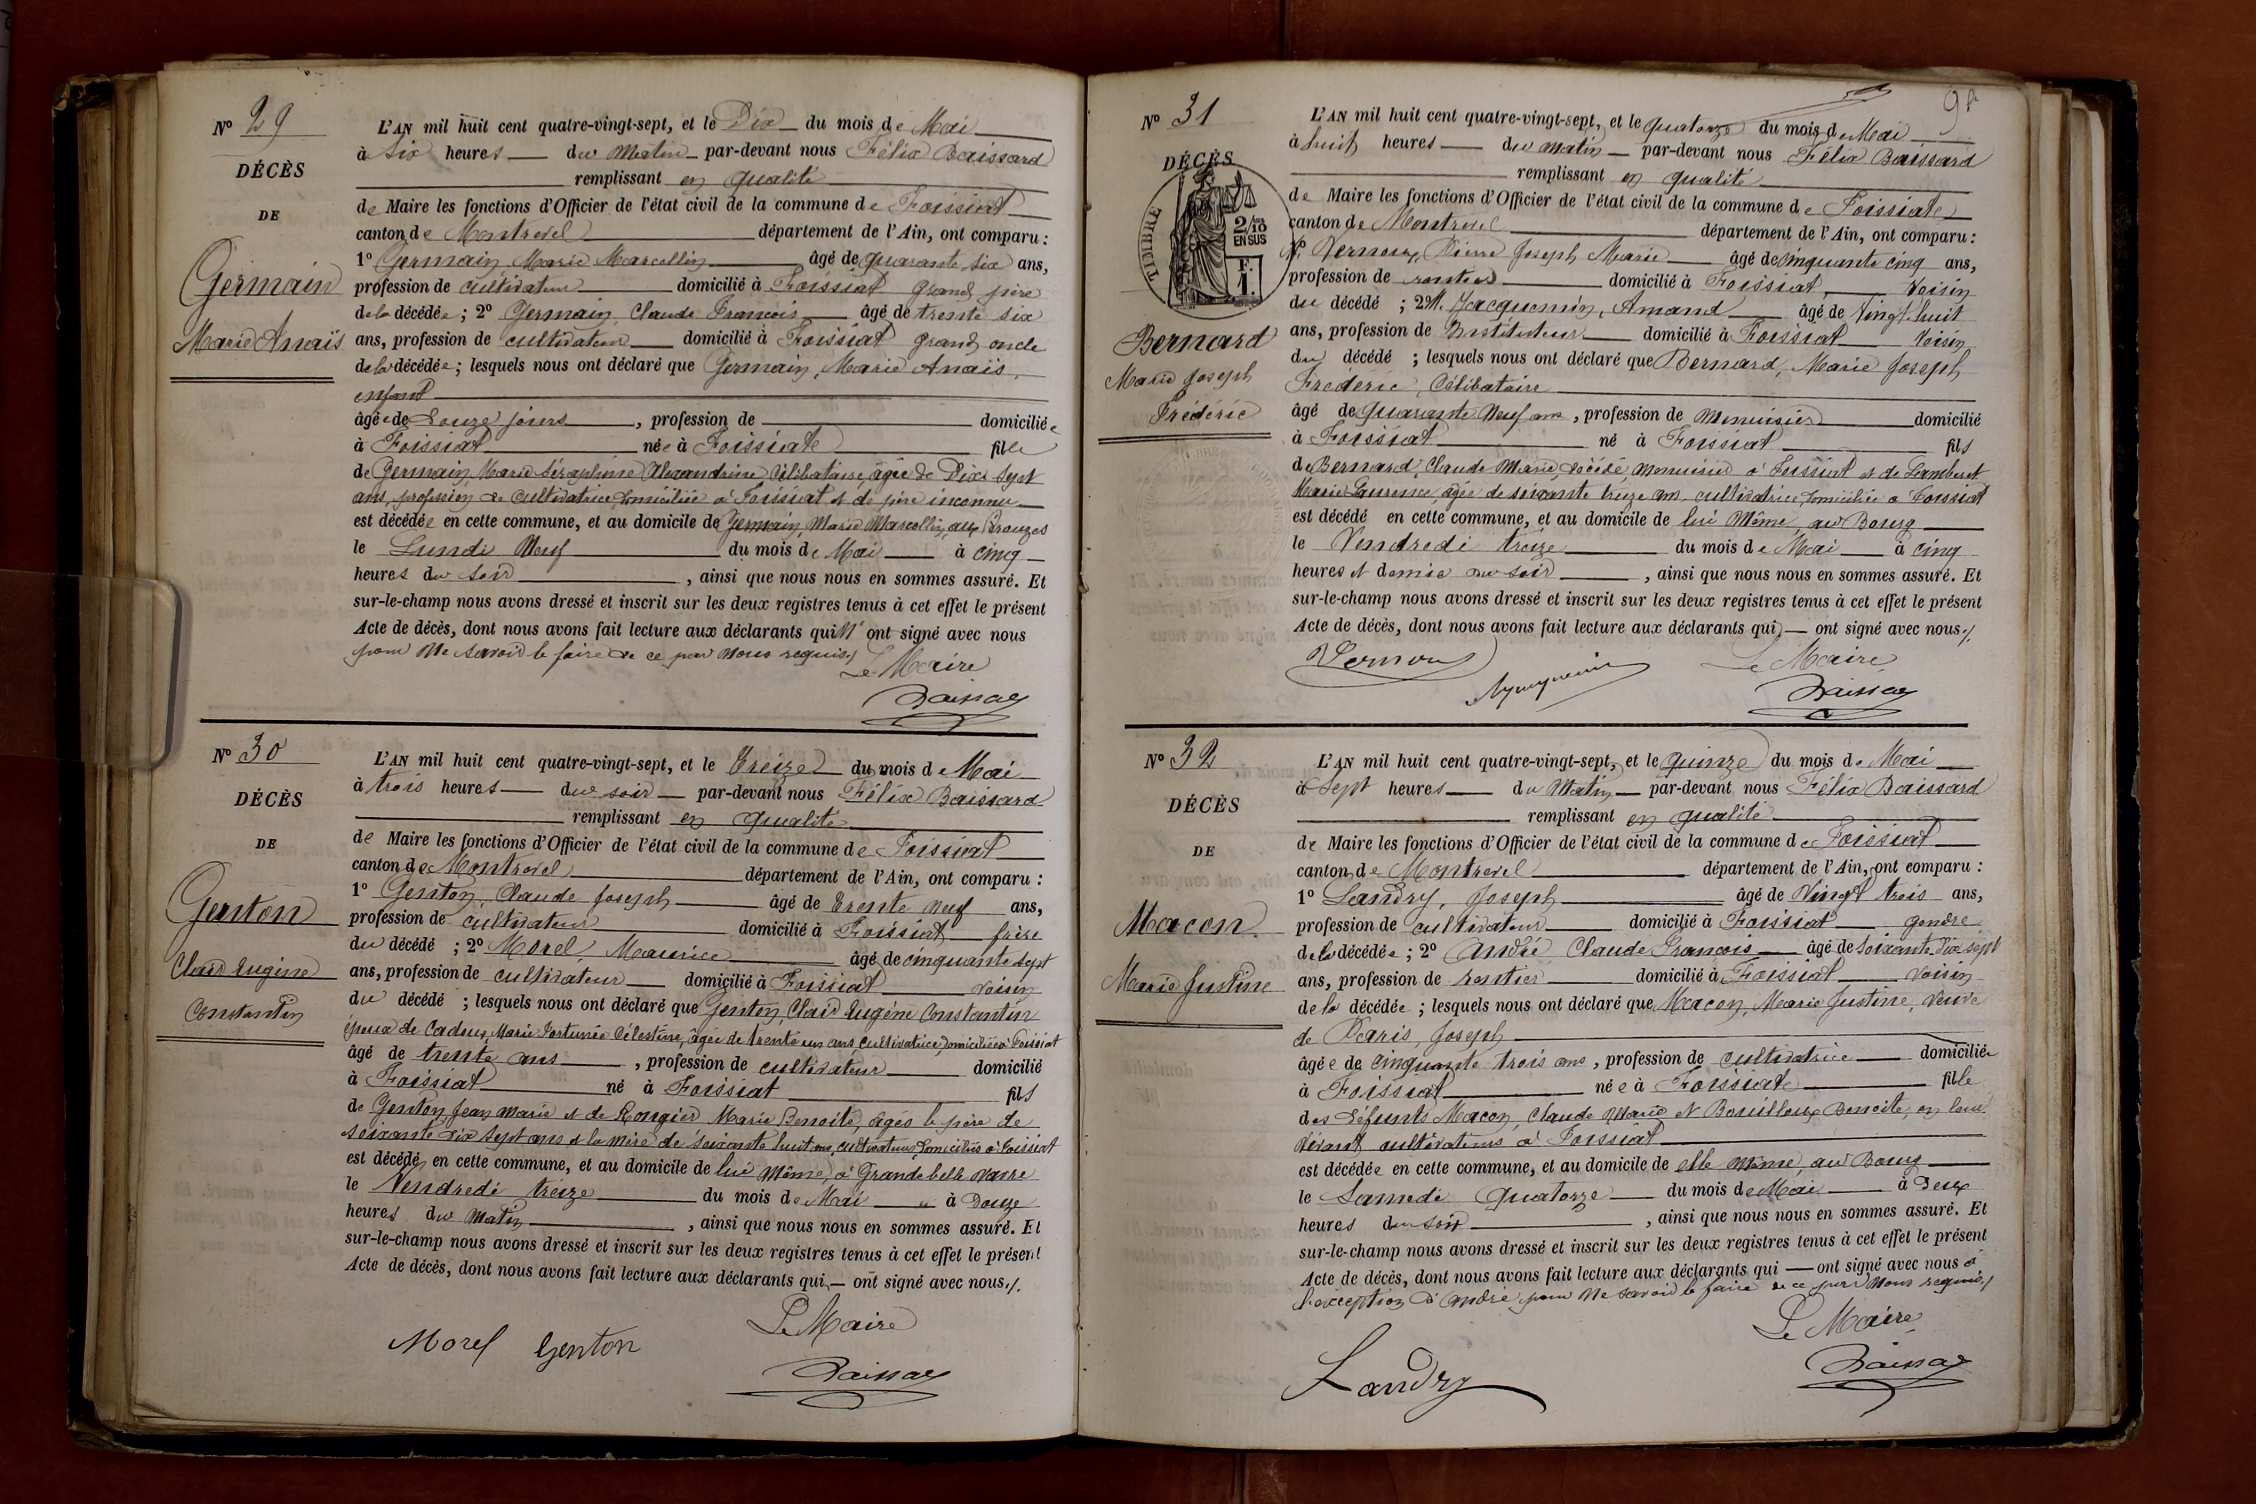 Nº 29
DÉCÈS
DE
Germain
Marie Anaïs
L'AN mil huit cent quatre-vingt-sept, et le Dix du mois de Mai
à six heures du Matin par-devant nous Félix Baissard
remplissant en qualité
de Maire les fonctions d'Officier de l'état civil de la commune de Foissiat
canton de Montrevel département de l'Ain, ont comparu :
1º Germain Marie Marcellin âgé de quarante six ans,
profession de cultivateur domicilié à Foissiat grand père
de la décédée ; 2º Germain Claude Francois âgé de trente six
ans, profession de cultivateur domicilié à Foissiat grand oncle
de la décédée ; lesquels nous ont déclaré que Germain, Marie Anaïs,
enfant
âgée de Douze jours , profession de domiciliée
à Foissiat née à Foissiat fille
de Germain Marie Séraphine Alexandrine Célibataire, âgée de Dix sept
ans, profession de cultivatrice domiciliée à Foissiat et de père inconnu
est décédée en cette commune, et au domicile de Germain, Marie Marcellin, aux Crouzes
le Lundi Neuf du mois de Mai à cinq
heures du soir , ainsi que nous nous en sommes assuré. Et
sur-le-champ nous avons dressé et inscrit sur les deux registres tenus à cet effet le présent
Acte de décès, dont nous avons fait lecture aux déclarants qui N' ont signé avec nous
pour Ne savoir le faire de ce par Nous requis./
Le Maire
Baissard
Nº 30
DÉCÈS
DE
Genton
Clair Eugène
Constantin
L'AN mil huit cent quatre-vingt-sept, et le Treize du mois de Mai
à trois heures du soir par-devant nous Félix Baissard
remplissant en qualité
de Maire les fonctions d'Officier de l'état civil de la commune de Foissiat
canton de Montrevel département de l'Ain, ont comparu :
1º Genton, Claude Joseph âgé de Trente Neuf ans,
profession de cultivateur domicilié à Foissiat frère
du décédé ; 2º Morel, Maurice âgé de cinquante sept
ans, profession de cultivateur domicilié à Foissiat voisin
du décédé ; lesquels nous ont déclaré que Genton, Clair Eugène Constantin
époux de Cadoux, Marie Fortunée Célestine, âgée de trente un ans cultivatrice, domiciliée à Foissiat
âgé de trente ans , profession de cultivateur domicilié
à Foissiat né à Foissiat fils
de Genton Jean Marie et de Rongier Marie Benoite, âgés le père de
soixante dix sept ans et la mère de soixante huit ans, cultivateurs domiciliés à Foissiat
est décédé en cette commune, et au domicile de lui Même, à Grande belle vavre
le Vendredi treize du mois de Mai à Douze
heures du Matin , ainsi que nous nous en sommes assuré. Et
sur-le-champ nous avons dressé et inscrit sur les deux registres tenus à cet effet le présent
Acte de décès, dont nous avons fait lecture aux déclarants qui ont signé avec nous./.
Le Maire
Morel Genton
Baissard
Nº 31
DÉCÈS
TIMBRE
2/10
EN SUS
Bernard
Marie Joseph
Frédéric
L'AN mil huit cent quatre-vingt-sept, et le quatorze du mois de Mai
à huit heures du matin par-devant nous Félix Baissard
remplissant en qualité
de Maire les fonctions d'Officier de l'état civil de la commune de Foissiat
canton de Montrevel département de l'Ain, ont comparu :
Vernoux, Pierre Joseph Marie âgé de cinquante cinq ans,
profession de rentier domicilié à Foissiat, Voisin
du décédé ; 2 M. Jacquemin, Amand âgé de Vingt huit
ans, profession de Instituteur domicilié à Foissiat Voisin
du décédé ; lesquels nous ont déclaré que Bernard, Marie Joseph
Frédéric, Célibataire
âgé de quarante Neuf ans , profession de Menuisier domicilié
à Foissiat né à Foissiat fils
de Bernard Claude Marie, décédé, Menuisier à Foissiat et de Lambert
Marie Laurence, âgée de soixante treize ans, cultivatrice, domiciliée à Foissiat
est décédé en cette commune, et au domicile de lui Même, au Bourg
le Vendredi treize du mois de Mai à cinq
heures et demie du soir , ainsi que nous nous en sommes assuré. Et
sur-le-champ nous avons dressé et inscrit sur les deux registres tenus à cet effet le présent
Acte de décès, dont nous avons fait lecture aux déclarants qui ont signé avec nous./.
Le Maire
Baissard
Nº 32
DÉCÈS
DE
Macon
Marie Justine
L'AN mil huit cent quatre-vingt-sept, et le quinze du mois de Mai
à sept heures du Matin par-devant nous Félix Baissard
remplissant en qualité
de Maire les fonctions d'Officier de l'état civil de la commune de Foissiat
canton de Montrevel département de l'Ain, ont comparu :
1º Landry, Joseph âgé de Vingt trois ans,
profession de cultivateur domicilié à Foissiat gendre
de la décédée ; 2º André Claude Francois âgé de soixante dix sept
ans, profession de rentier domicilié à Foissiat voisin
de la décédée ; lesquels nous ont déclaré que Macon, Marie Justine, Veuve
de Paris, Joseph
âgée de cinquante trois ans , profession de cultivatrice domiciliée
à Foissiat née à Foissiat fille
des Défunts Macon, Claude Marie et Bouilloux Benoite, en leur
vivant cultivateurs à Foissiat
est décédée en cette commune, et au domicile de elle Même, au Bourg
le Samedi Quatorze du mois de Mai à Deux
heures du soir , ainsi que nous nous en sommes assuré. Et
sur-le-champ nous avons dressé et inscrit sur les deux registres tenus à cet effet le présent
Acte de décès, dont nous avons fait lecture aux déclarants qui ont signé avec nous à
l'exception d'André pour Ne savoir le faire de ce par Nous requis./
Le Maire
Landry
Baissard